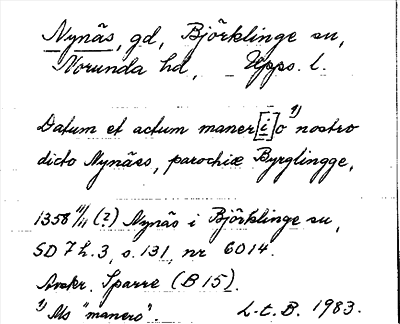 Nynäs, gd, Björklinge sn,
Norunda hd, Upps. l.
Datum et actum maner[i]o 1) nostro
dicto Nynäes, parochiæ Byrglingge,
1358 11/11 (?) Nynäs i Björklinge sn,
SD 7 h. 3, s. 131, nr 6014.
Avskr. Sparre (B 15).
1) Ms "manero". L.t.B. 1983.